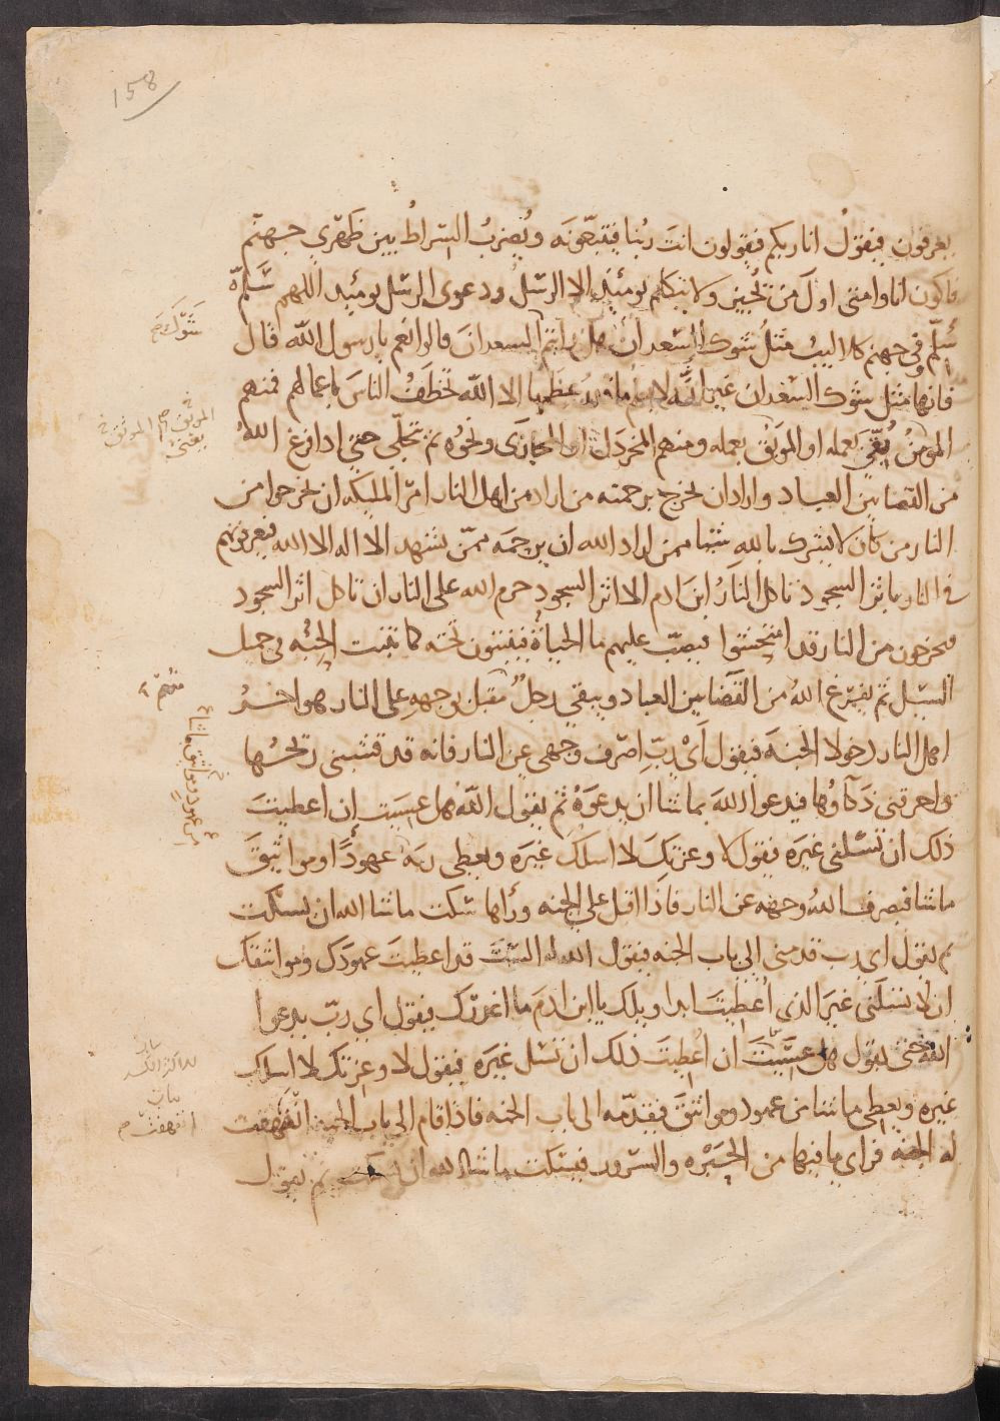 158
يعرفون فيقول انا ربكم فيقولون انت ربنا فيتبعونه ويُضربُ السراطُ بين ظهري جهنم
فاكون انا وامتى اول من يُجيز ولا يتكلم يومئذٍ الا الرسل ودعوى الرسل يومئذ اللهم سَلِّم
سَلِّم وفي جهنم كلاليبُ مثلُ شوك السعدان هل رايتم السعدانَ قالوا نعم يا رسول الله قال
فانها مثل شوك السعدان غير انه لا يعلم ما قدرُ عظمها الا الله تخطَفُ الناسَ باعمالهم فمنهم
المومنُ بقى بعمله او الموبَقُ بعمله ومنهم المخردَل او المجازَى ونحوُه ثم يتجلّى حتى اذا فرغ اللهُ
من القضا بين العباد واراد ان يخرج برحمته من اراد من اهل النار امر الملئكه ان يخرجوا من
النار من كان لا يشرك بالله شيا ممن اراد الله ان يرحمَه ممّن يشهد الا اله الا الله فيعرفونهم
في النار باثر السجود تاكل النارُ ابنَ ادم الا اثر السجود حرم الله على النار ان تاكل اثر السجود
فيخرجون من النار قد امتحشوا فيصبّ عليهم ما الحياة فينبتون تحته كما تنبت الحِبّه في حميل
السيل ثم يفرغ اللهُ من القضا بين العباد ويبقى رجلٌ مقبل بوجههِ على النار هو اخرُ
اهل النار دخولا الجنهَ فيقول اَىْ ربِّ اصرف وجهى عن النار فانه قد قشبنى ريحُها
واحرقنى ذكاؤها فيدعوا اللهَ بما شا ان يدعوَهُ ثم يقول اللهُ هل عسَيتَ إن اعطيتَ
ذلك ان تسلنى غيرَه فيقول لا وعزتكَ لا اسلكَ غيَره ويعطى ربَه عهودًا ومواثيقَ
ما شا فيصرف اللهُ وجهه عن النار فاذا اقبل على الجنه ورآها سكت ما شا الله ان يسكت
ثم يقول اى رب قدمنى الى باب الجنه فيقول الله له الستَ قد اعطيتَ عهودَك ومواثيقك
ان لا تسلَنى غيرَ الذى اُعطيتَ ابدا ويلك يا ابن ادمَ ما اغدرك فيقول اى ربّ يدعوا
اللهَ حتى يقول هل عسَيتَ ان اُعطيتَ ذلك ان تسل غيرَه فيقول لا وعزتك لا اسلك
غيره ويعطى ما شا من عهود ومواثيق فيقدّمه الى باب الجنه فاذا قام الى باب الجنه انفهقت
له الجنه فراى ما فيها من الحَبْره والسرور فيسكت ما شا الله ان يسكت ثم يقول
شَوك
من عهود ومواثيق ما شا
انفهقت